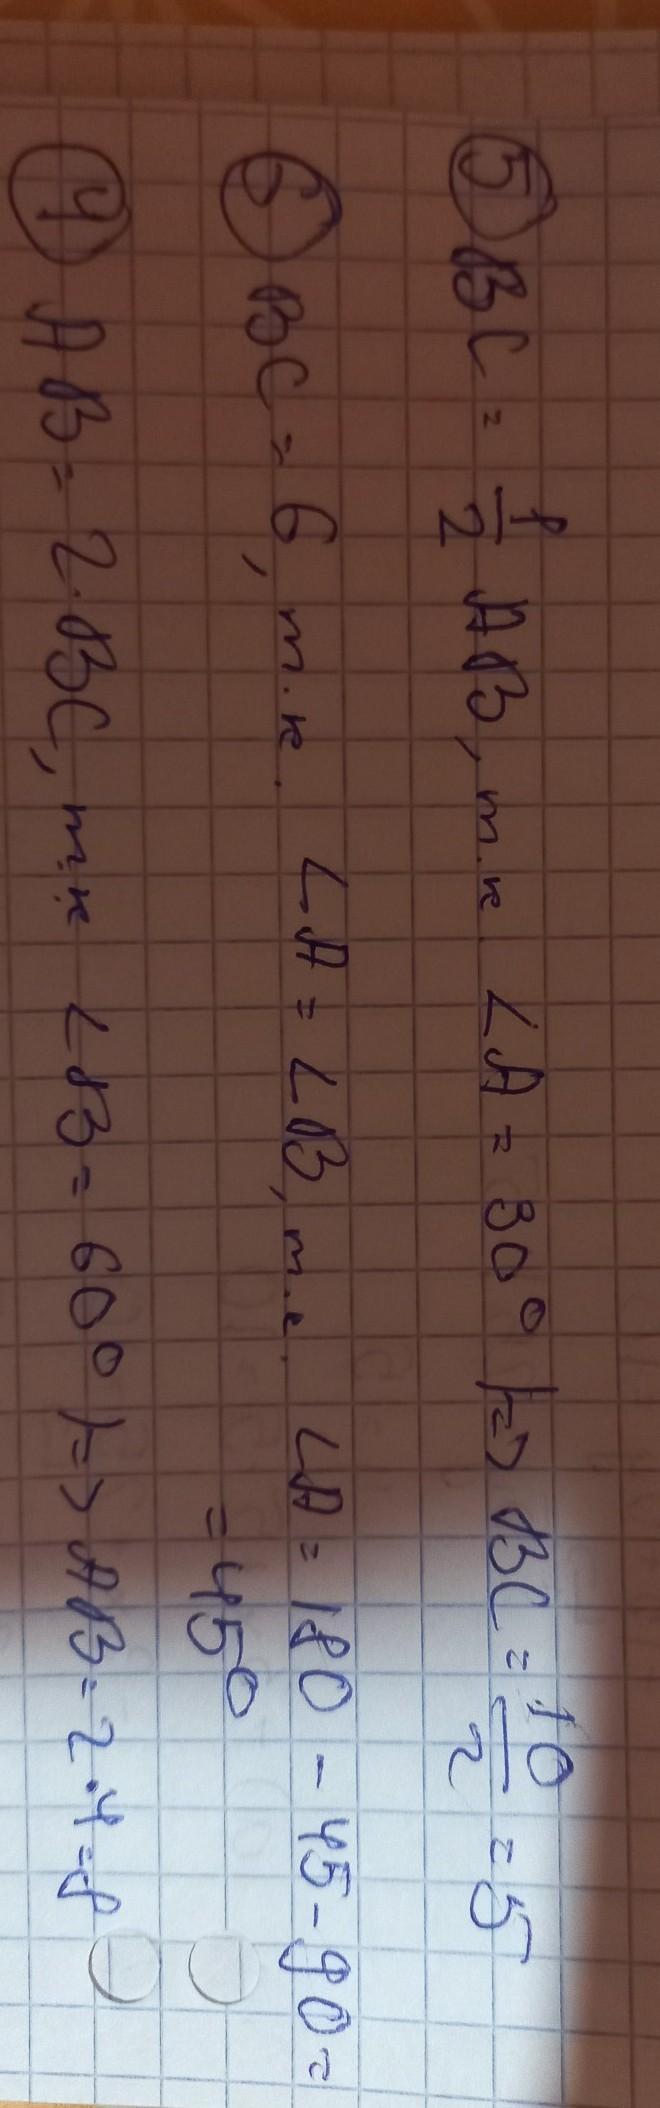 5 BC = 1/2 AB, т.к. ∠A = 30° |=> BC = 10/2 = 5
6 BC = 6, т.к. ∠A = ∠B, т.е. ∠A = 180 - 45 - 90 =
= 45°
7 AB = 2·BC, т.к ∠B = 60° |=> AB = 2·4 = 8